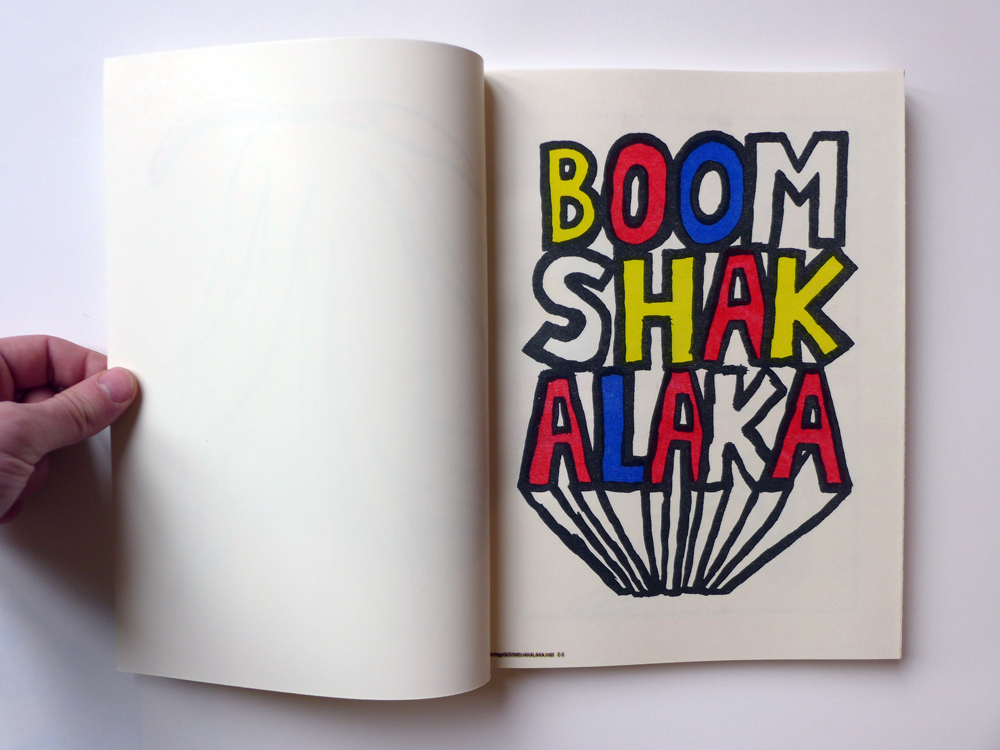 BOOM
SHAK
ALAKA